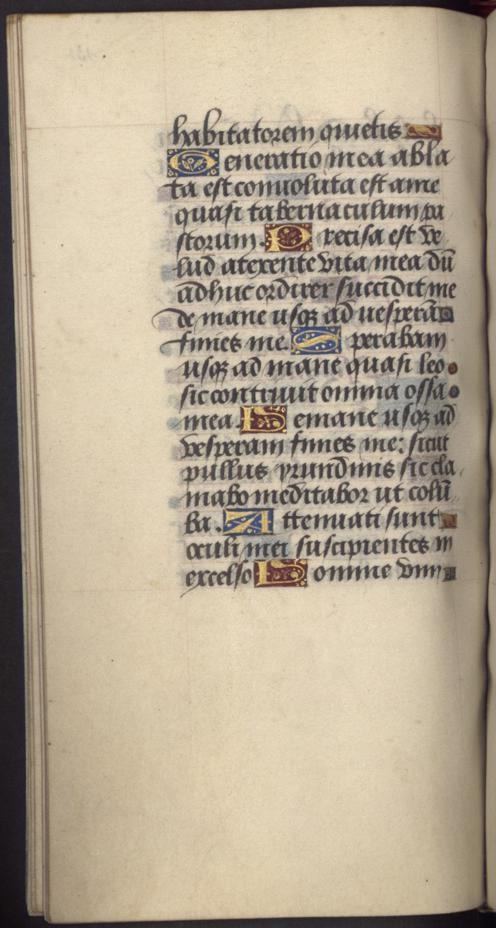 habitatorem quietis
Generatio mea abla
ta est conuoluta est a me
quasi tabernaculum pa
storum. Precisa est ve
lud a texente vita mea dū
adhuc ordirer succidit me
de mane usqꝫ ad uesperā
finies me. Sperabam
usqꝫ ad mane quasi leo
sic contriuit omnia ossa
mea. De mane usqꝫ ad
vesperam finies me: sicut
pullus yrundinis sic cla
mabo meditabor ut colū
ba. Attenuati sunt
oculi mei suscipientes in
excelso Domine vim